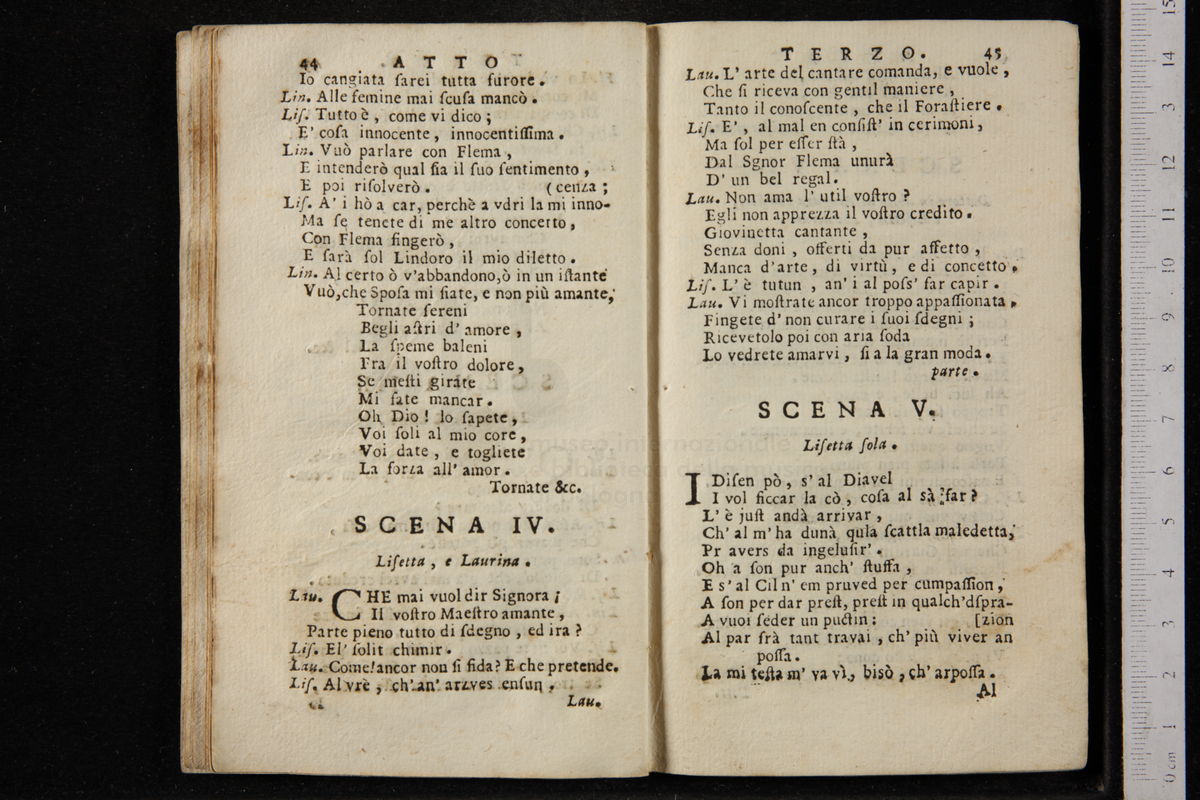 44 ATTO
Io cangiata sarei tutta furore.
Lin. Alle femine mai scusa mancò.
Lis. Tutto è, come vi dico;
E' cosa innocente, innocentissima.
Lin. Vuò parlare con Flema,
E intenderò qual sia il suo sentimento,
E poi risolverò. (cenza;
Lis. A' i hò a car, perchè a vdri la mi inno-
Ma se tenete di me altro concerto,
Con Flema fingerò,
E sarà sol Lindoro il mio diletto.
Lin. Al certo ò v'abbandono, ò in un istante
Vuò, che Sposa mi siate, e non più amante,
Tornate sereni
Begli astri d' amore,
La speme baleni
Fra il vostro dolore,
Se mesti girate
Mi fate mancar.
Oh Dio! lo sapete,
Voi soli al mio core,
Voi date, e togliete
La forza all' amor.
Tornate &c.
SCENA IV.
Lisetta, e Laurina.
Lau. CHE mai vuol dir Signora;
Il vostro Maestro amante,
Parte pieno tutto di sdegno, ed ira?
Lis. El' solit chimir.
Lau. Come! ancor non si fida? E che pretende.
Lis. Al vrè, ch' an' arzves ensun.
Lau.
TERZO. 45
Lau. L' arte del cantare comanda, e vuole,
Che si riceva con gentil maniere,
Tanto il conoscente, che il Forastiere.
Lis. E', al mal en consist' in cerimoni,
Ma sol per esser stà,
Dal Sgnor Flema unurà
D' un bel regal.
Lau. Non ama l' util vostro?
Egli non apprezza il vostro credito.
Giovinetta cantante,
Senza doni, offerti da pur affetto,
Manca d'arte, di virtù, e di concetto.
Lis. L' è tutun, an' i al poss' far capir.
Lau. Vi mostrate ancor troppo appassionata.
Fingete d' non curare i suoi sdegni;
Ricevetelo poi con aria soda
Lo vedrete amarvi, si a la gran moda.
parte.
SCENA V.
Lisetta sola.
I Disen pò, s' al Diavel
I vol ficcar la cò, cosa al sà far?
L' è just andà arrivar,
Ch' al m' ha dunà qula scattla maledetta,
Pr avers da ingelusir'.
Oh a son pur anch' stuffa,
E s' al Cil n' em pruved per cumpassion,
A son per dar prest, prest in qualch' dspra-
A vuoi seder un puctin: [zion
Al par srà tant travai, ch' più viver an
possa.
La mi testa m' va vì, bisò, ch' arpossa.
Al
15
14
3
12
11
10
9
8
7
6
5
4
3
2
1
0 cm